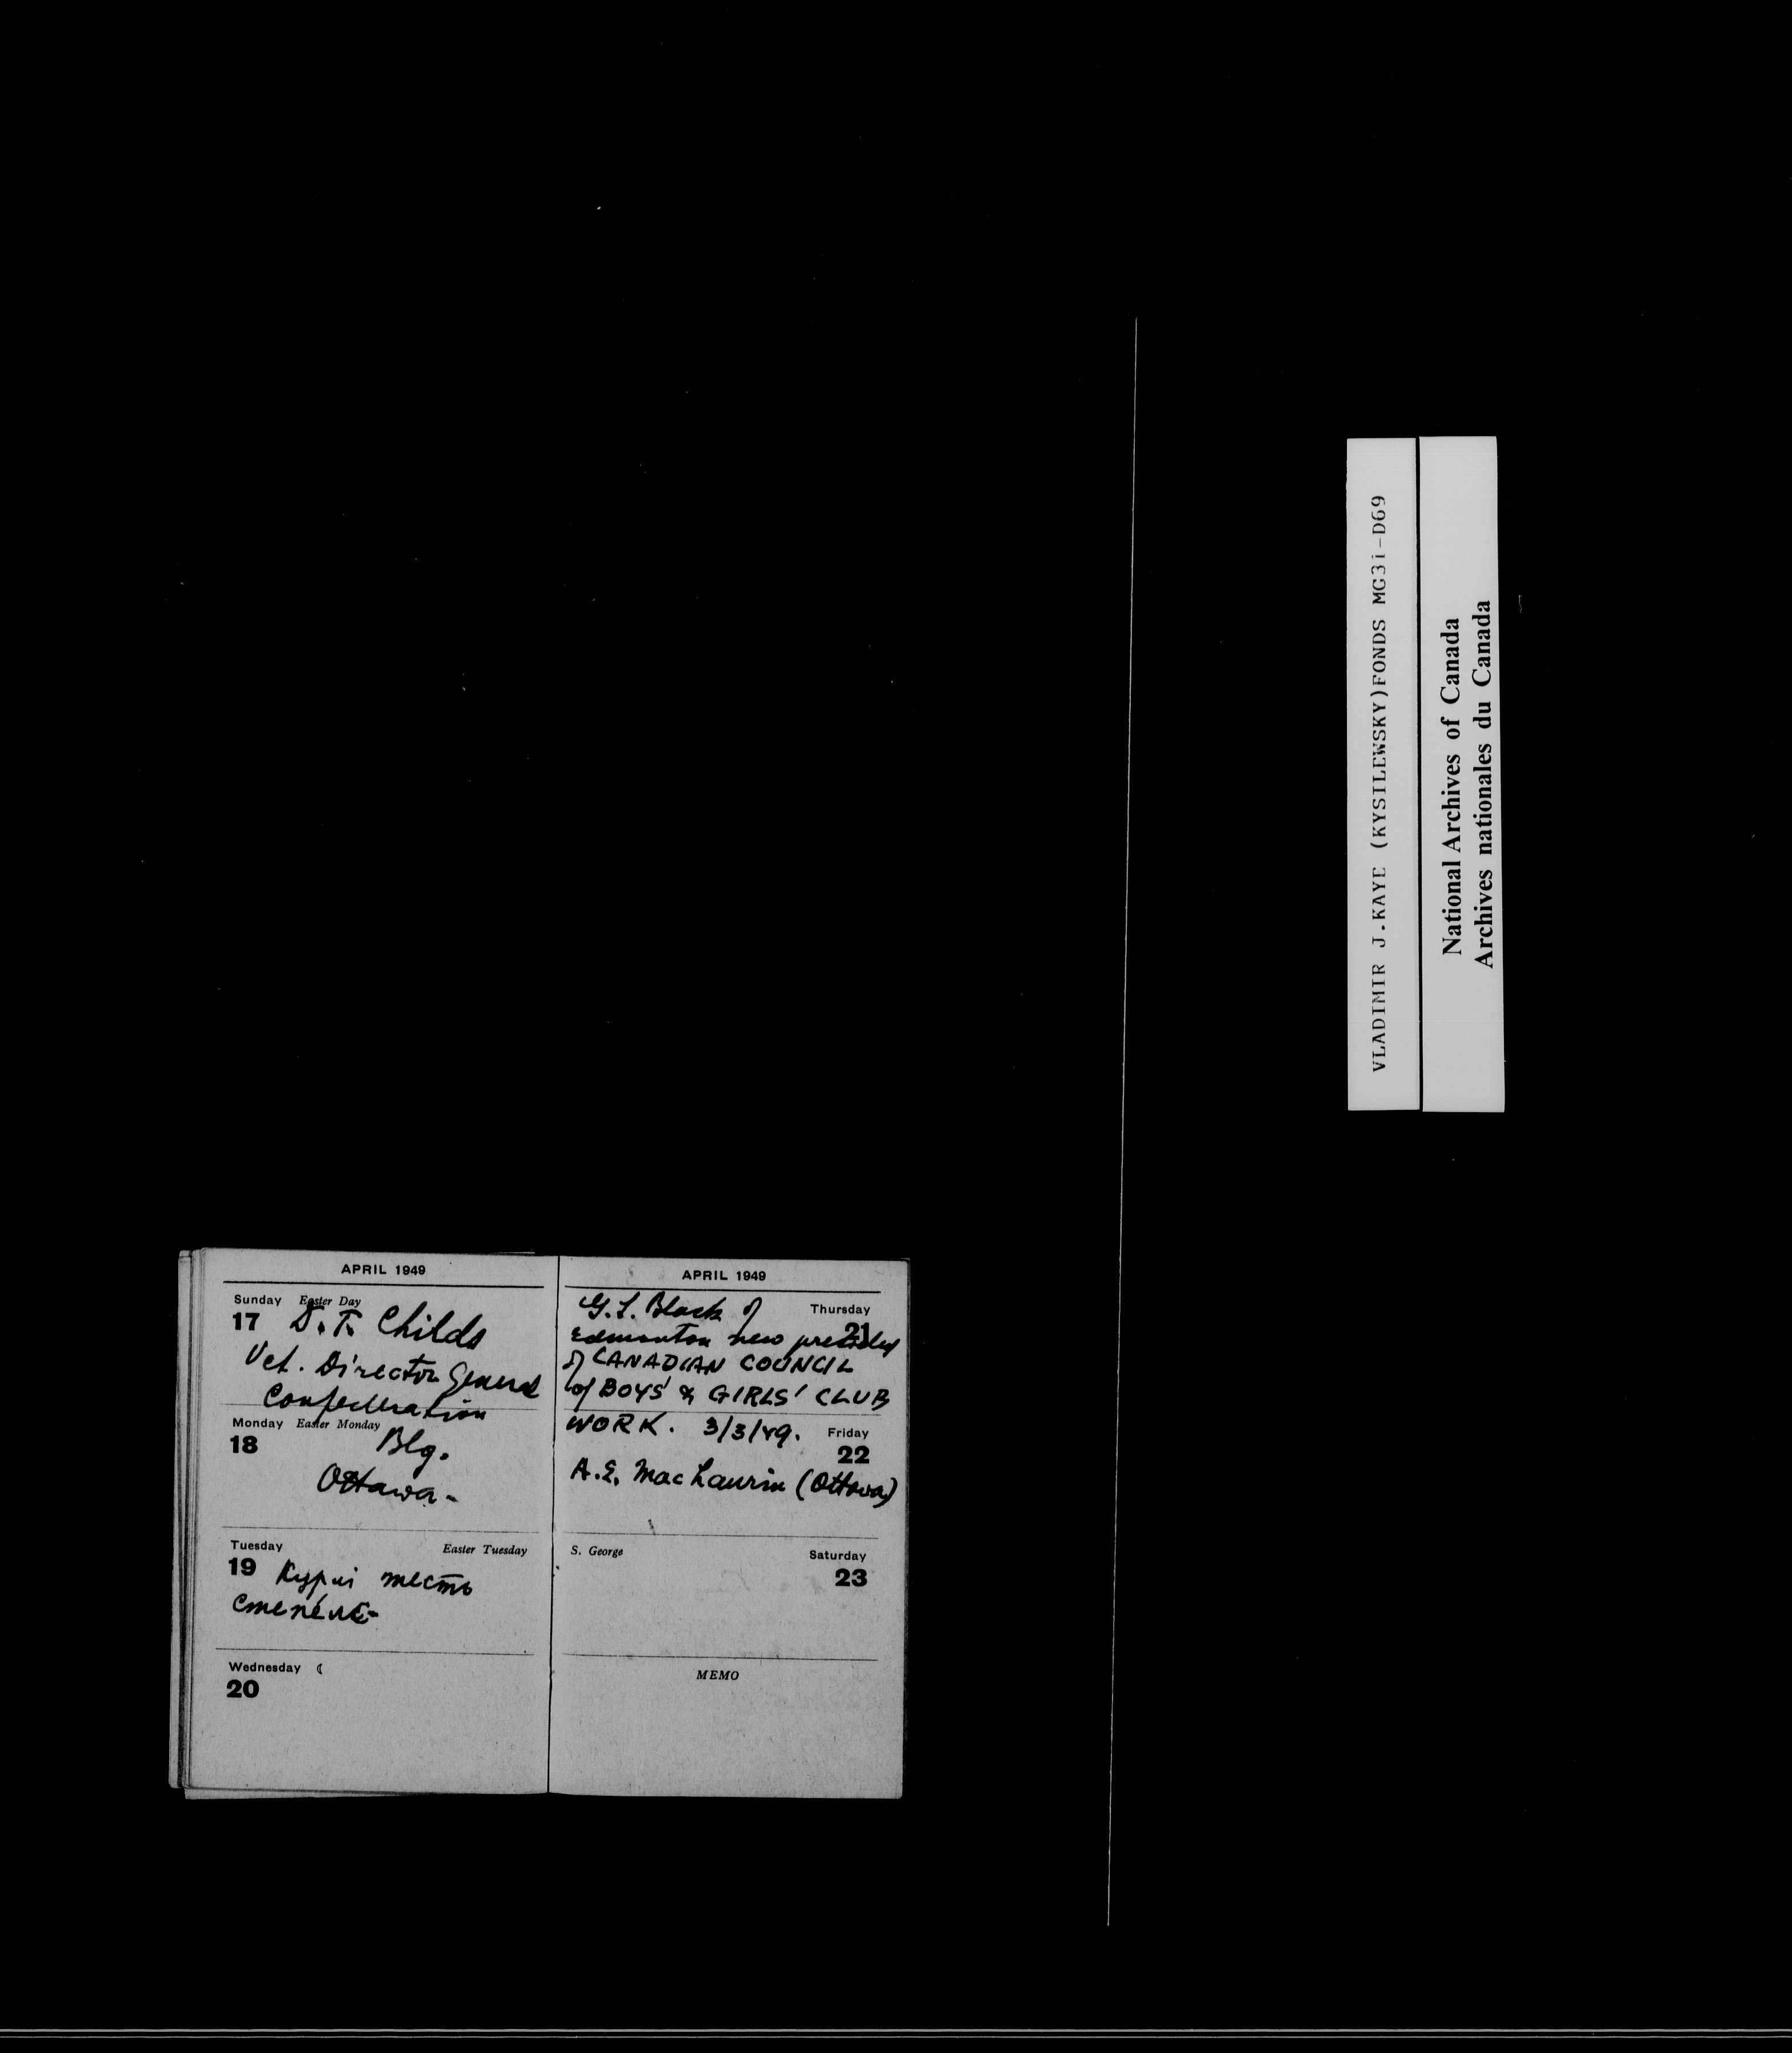 APRIL 1949
Sunday Easter Day
17 D. T. Childs
Vet. Director General
Confederation
Monday Easter Monday
18 Blg.
Ottawa-
Tuesday Easter Tuesday
19
Wednesday ☾
20
APRIL 1949
G. L. Black of Thursday
Edmonton new 21
of CANADIAN COUNCIL
of BOYS' & GIRLS' CLUB
WORK. 3/3/49. Friday
22
A.E. MacLaurin (Ottawa)
S. George Saturday
23
MEMO
VLADIMIR J.KAYE (KYSILEWSKY)FONDS MG31-D69
National Archives of Canada
Archives nationales du Canada